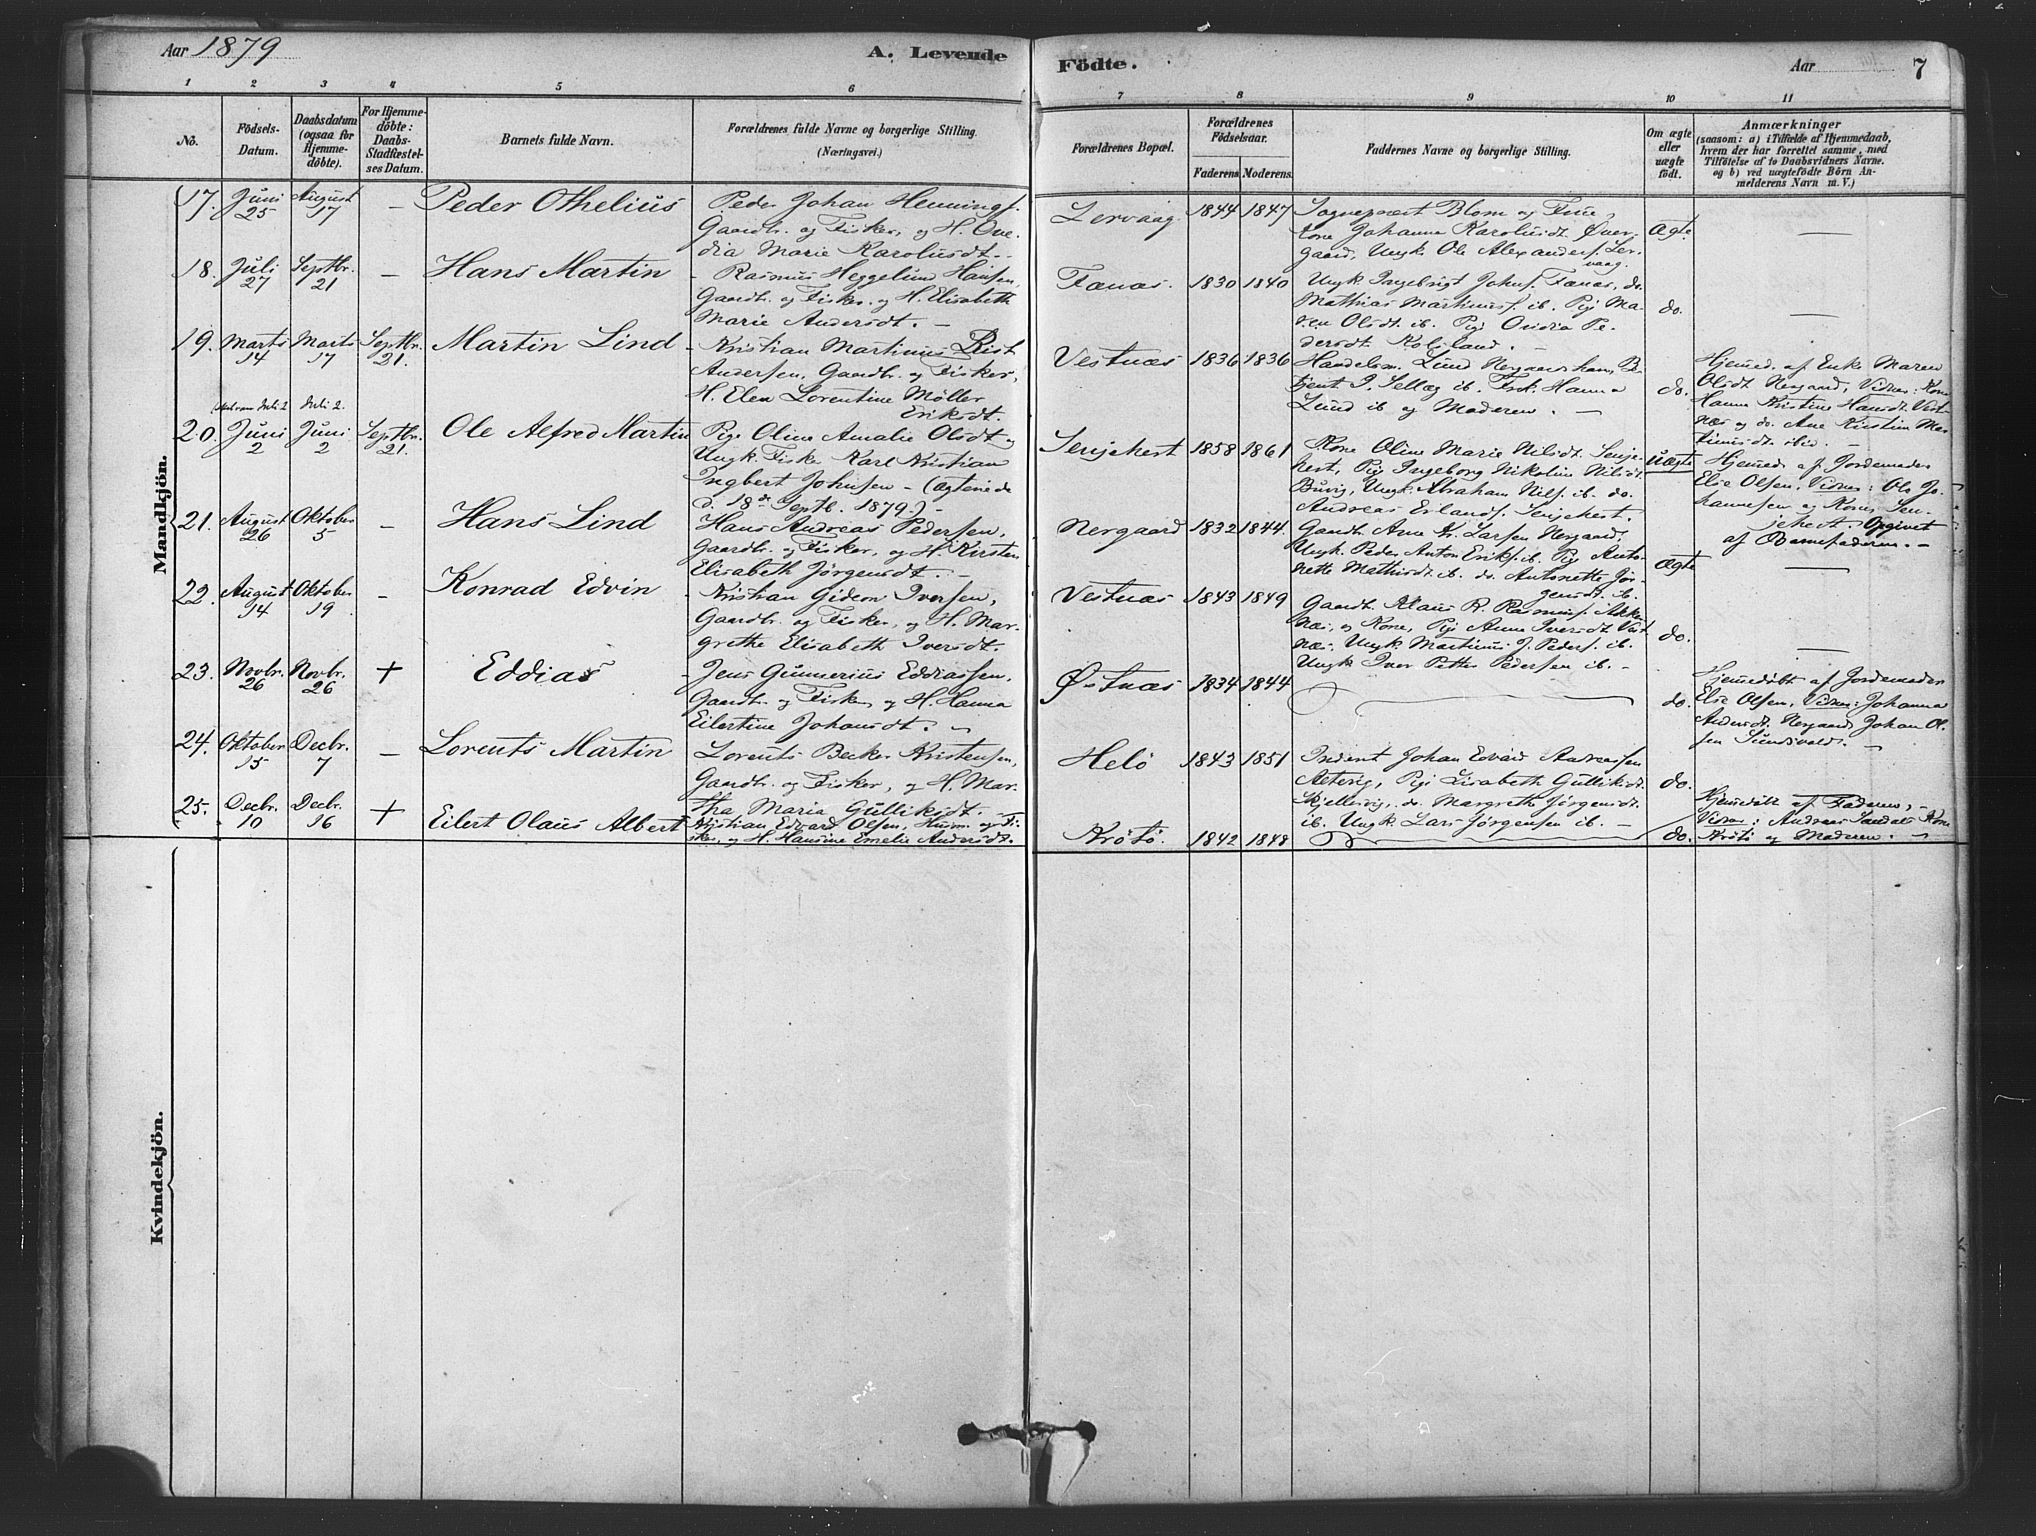 Aar 1879
A. Levende
Födte.
Aar
7
1 2 3 4 5 6
7 8 9 10 11
No.
Födsels-
Datum.
Daabsdatum
(ogsaa for
Hjemme-
döbte).
For Hjemme-
döbte:
Daabs-
Stadfæstel-
ses Datum.
Barnets fulde Navn.
Forældrenes fulde Navne og borgerlige Stilling.
(Næringsvei.)
Forældrenes Bopæl.
Forældrenes
Födselsaar.
Faderens Moderens.
Faddernes Navne og borgerlige Stilling.
Om ægte
eller
uægte
födt.
Anmærkninger
(saasom: a) i Tilfælde af Hjemmedaab,
hvem der har forrettet samme, med
Tilföielse af to Daabsvidners Navne.
og b) ved uægtefödte Börn An-
melderens Navn m. V.)
Mandkjön.
17. Juni 25 August 17 – Peder Othelius
Peder Johan Hennings.
Gaardbr. og Fisker, og H. Ove-
dia Marie Karolusdt. –
Lervaag 1844 1847
Sogneprest Blom og Frue,
Kone Johanna Karolusdt. Øver-
gaard, Ungk. Ole Alexanders. Ler-
vaag.
Ægte. –
18. Juli 27 Septbr. 21 – Hans Martin
Rasmus Heggelund Hansen,
Gaardbr. og Fisker, og H. Elisabeth
Marie Andersdt. –
Fænæs. 1830 1840
Ungk. Ingebrigt Johns. Fænæs, do.
Mathias Martinus. ib. Pige Ma-
ren Olsdt. ib. Pige Ovidia Pe-
dersdt. –
do. –
19. Marts 14 Marts 17 Septbr. 21. Martin Lind
Kristian Martinus Rist
Andersen, Gaardbr. og Fisker,
H. Elen Lorentine Møller
Eriksdt.
Vestnæs 1836 1836
Handelsm. Lund Nergaardshavn, Be-
tjent P. ib. Frk. Hanna
Lund ib og Moderen. –
do.
Hjemmed. af Enke Maren
Olsdt. Nergaard, Vidner: Kone
Hanna Kristine Hansdt. Vest-
næs og do. Ane Kirstine Mar-
tinusdt. ibid. –
20. Juni 2 Juni 2 Septbr. 21. Ole Alfred Martin
Juli 2 Juli 2.
Pige Oline Amalie Olsdt. og
Ungk. Fisker Karl Kristian
Ingbert Johnsen – (ægteviede
d. 18de Septbr. 1879.) –
Senjehest 1858 1861
Kone Oline Marie Nilsdt. Senje-
hest, Pige Ingeborg Nikoline Nilsdt.
Buvig, Ungk. Abraham Nils. ib. do.
Andreas Erlands. Senjehest.
Uægte
Hjemmed. af Jordemoder
Else Olsen, Vidner: Ole Jo-
hannesen og Kone, Sen-
jehest. Opgivet
af Barnefaderen. –
21. August 26 Oktober 5 – Hans Lind
Hans Andreas Pedersen,
Gaardbr. og Fisker, og H. Kirsten
Elisabeth Jörgensdt. –
Nergaard 1832 1844.
Gaardbr. Arne Kr. Larsen Nergaard,
Ungk. Peder Anton Eriks. ib. Pige Anto-
nette Mathisdt. ib. do. Antonette Jör-
gensdt. ib.
Ægte –
22. August 14 Oktober 19. – Konrad Edvin
Kristian Gideon Iversen,
Gaardbr. og Fisker, og H. Mar-
grethe Elisabeth Iversdt.
Vestnæs 1843 1849
Gaardbr. Klaus R. Rasmus. Akke-
næs, og Kone, Pige Anna Iversdt. Vest-
næs, Ungk. Martinus J. Peders. ib.
Ungk. Iver Petter Pedersen ib. –
do. –
23. Novbr. 26 Novbr. 26 + Eddias
Jens Gunnerius Eddiassen,
Gaardbr. og Fisker, og H. Hanna
Eilertine Johansdt. –
Østnæs 1834 1844
do.
Hjemmedøbt af Jordemoder
Else Olsen, Vidner: Johanna
Andersdt. Nergaard, Johan Ol-
sen Sundsvold. –
24. Oktober 15 Decbr. 7 – Lorents Martin
Lorents Becker Kristensen,
Gaardbr. og Fisker, og H. Mar-
tha Maria Gulliksdt. –
Helö 1843 1851
Inderst Johan Edvard Andreassen
Pige Lisabeth Gulliksdt.
Skjellesvig, do. Margrethe Jörgensdt.
ib. Ungk. Lars Jörgensen ib. –
do.
25. Decbr. 10 Decbr. 16 + Eilert Olaus Albert
Kristian Edvard Olsen, Husm. og Fi-
sker, og H. Hansine Emelie Andersdt.
Krötö. 1842 1848
do.
Hjemmedøbt af Faderen, –
Vidner: Andreas Kone
Krötö og Moderen. –
Kvindekjön.